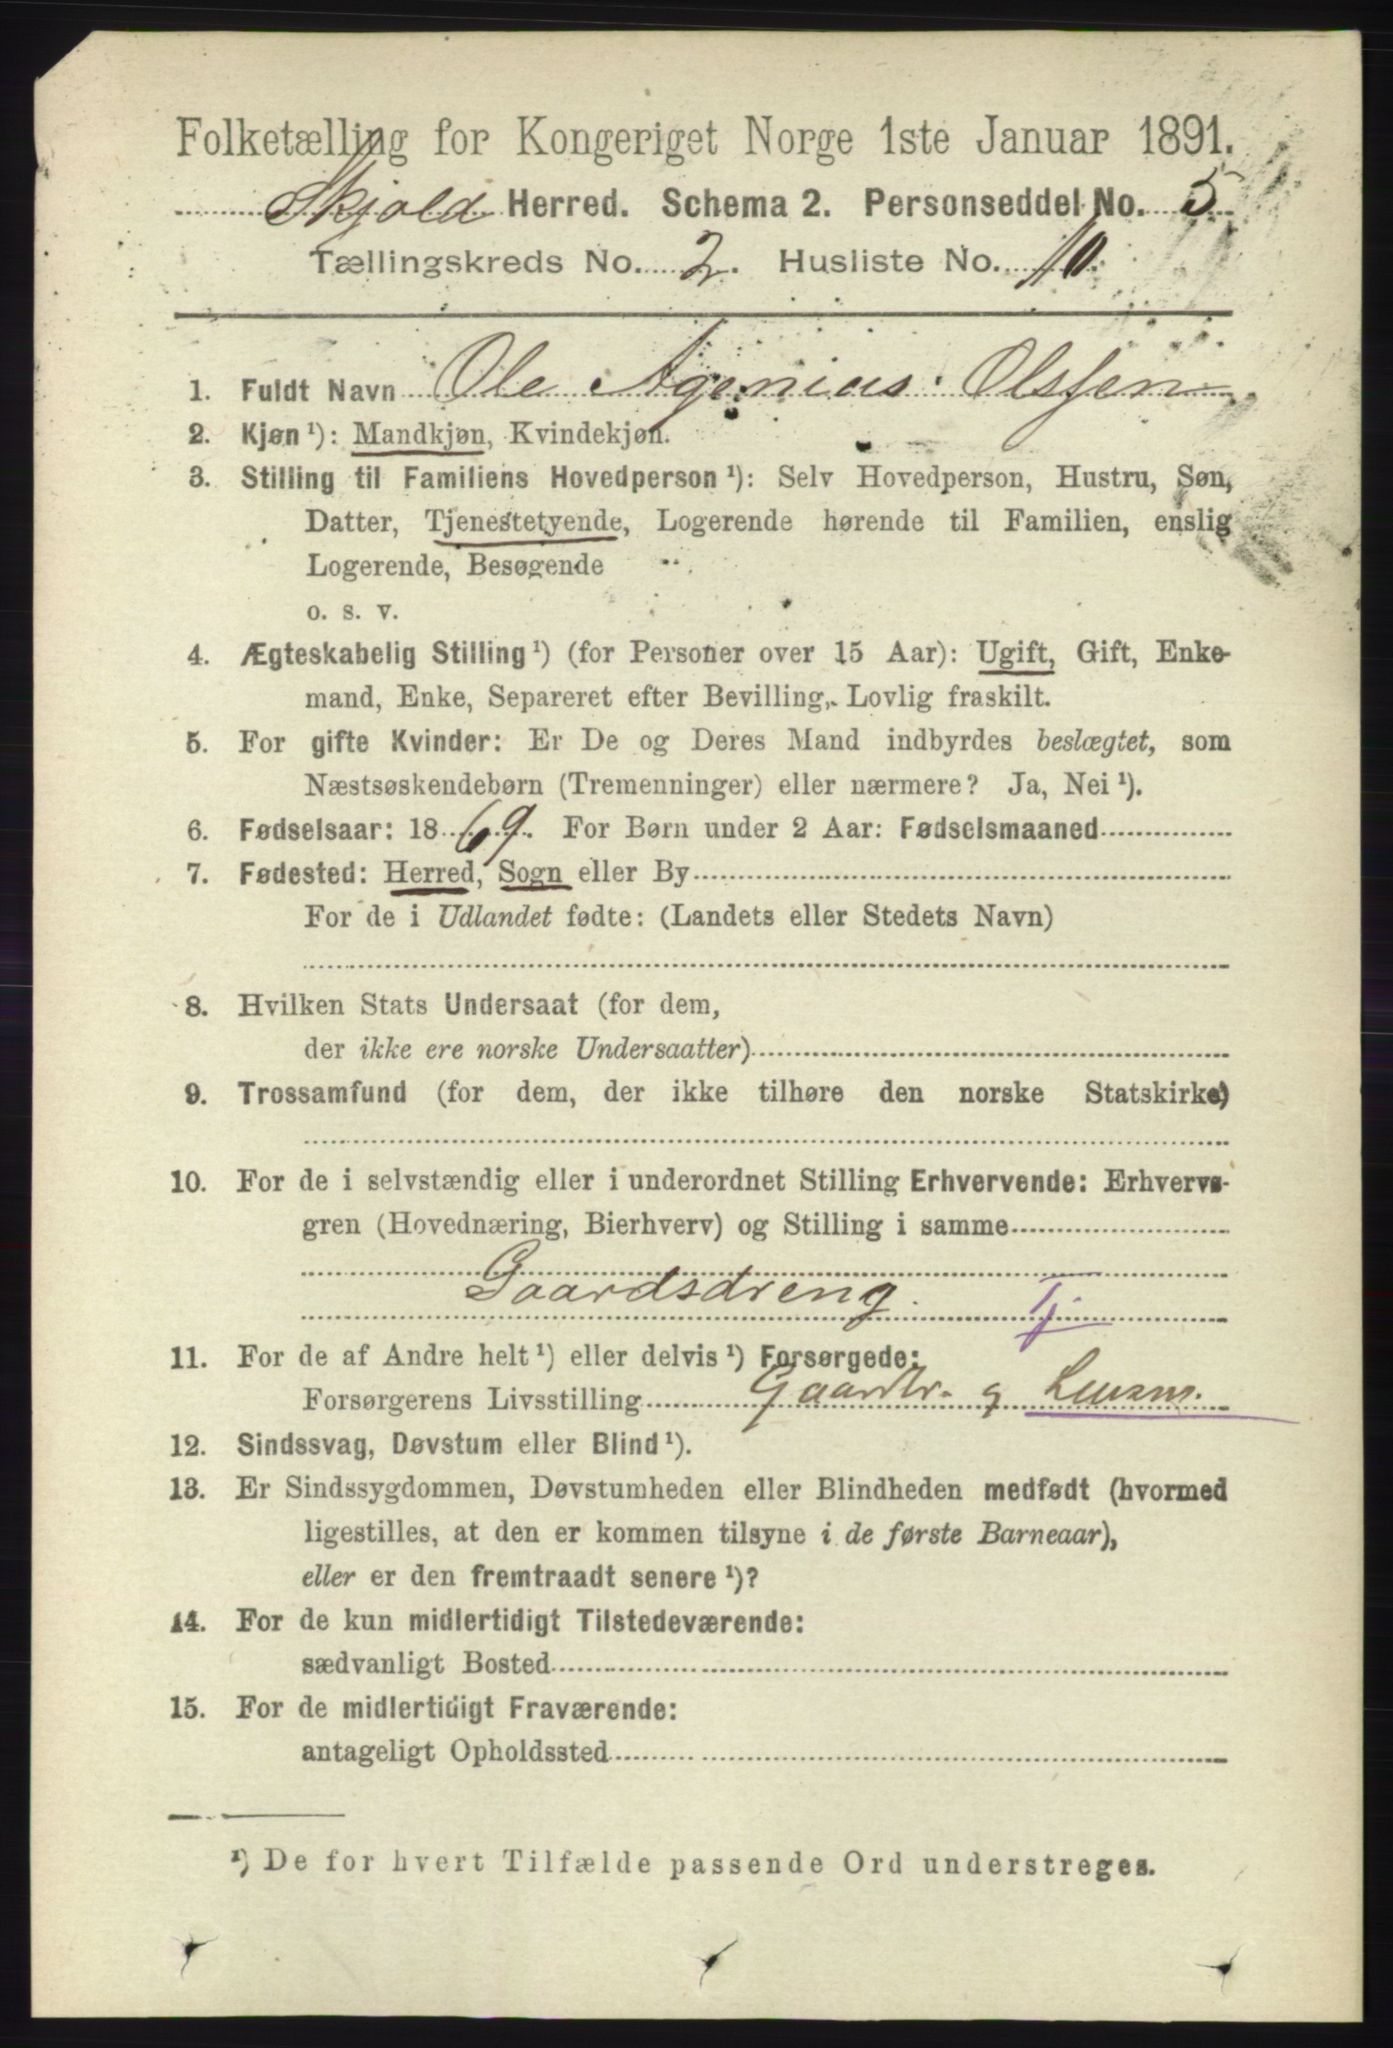 Folketælling for Kongeriget Norge 1ste Januar 1891.
Skjold Herred. Schema 2. Personseddel No. 5
Tællingskreds No. 2. Husliste No. 10.
1. Fuldt Navn Ole Agenius Olssen
2. Kjøn ¹): Mandkjøn, Kvindekjøn.
3. Stilling til Familiens Hovedperson ¹): Selv Hovedperson, Hustru, Søn,
Datter, Tjenestetyende, Logerende hørende til Familien, enslig
Logerende, Besøgende
o. s. v.
4. Ægteskabelig Stilling ¹) (for Personer over 15 Aar): Ugift, Gift, Enke-
mand, Enke, Separeret efter Bevilling, Lovlig fraskilt.
5. For gifte Kvinder: Er De og Deres Mand indbyrdes beslægtet, som
Næstsøskendebørn (Tremenninger) eller nærmere? Ja, Nei ¹).
6. Fødselsaar: 1869. For Børn under 2 Aar: Fødselsmaaned
7. Fødested: Herred, Sogn eller By
For de i Udlandet fødte: (Landets eller Stedets Navn)
8. Hvilken Stats Undersaat (for dem,
der ikke ere norske Undersaatter)
9. Trossamfund (for dem, der ikke tilhøre den norske Statskirke)
10. For de i selvstændig eller i underordnet Stilling Erhvervende: Erhvervs-
gren (Hovednæring, Bierhverv) og Stilling i samme
Gaardsdreng. Tj.
11. For de af Andre helt ¹) eller delvis ¹) Forsørgede:
Forsørgerens Livsstilling Gaardbr. g Lensm.
12. Sindssvag, Døvstum eller Blind ¹).
13. Er Sindssygdommen, Døvstumheden eller Blindheden medfødt (hvormed
ligestilles, at den er kommen tilsyne i de første Barneaar),
eller er den fremtraadt senere ¹)?
14. For de kun midlertidigt Tilstedeværende:
sædvanligt Bosted
15. For de midlertidigt Fraværende:
antageligt Opholdssted
¹) De for hvert Tilfælde passende Ord understreges.